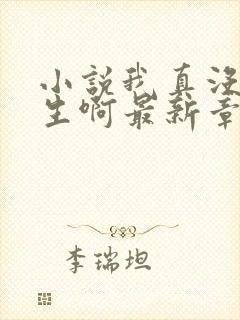 小说我真没
生啊最新章
李瑞坦